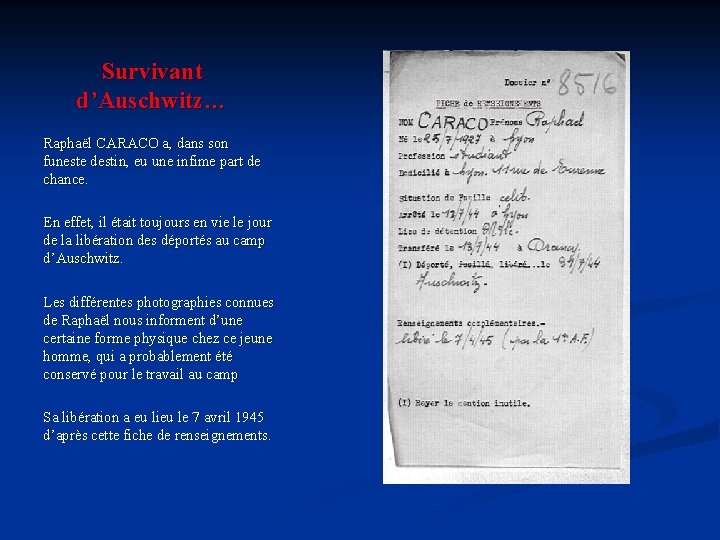 Survivant
d’Auschwitz…
Raphaël CARACO a, dans son
funeste destin, eu une infime part de
chance.
En effet, il était toujours en vie le jour
de la libération des déportés au camp
d’Auschwitz.
Les différentes photographies connues
de Raphaël nous informent d’une
certaine forme physique chez ce jeune
homme, qui a probablement été
conservé pour le travail au camp
Sa libération a eu lieu le 7 avril 1945
d’après cette fiche de renseignements.
Dossier n° 8516
FICHE de RENSEIGNEMENTS
NOM CARACO Prénoms Raphael
Né le 25/7/1927 à Lyon
Profession étudiant
Domicilié à Lyon. 11 rue de Turenne
Situation de Famille celib.
Arrêté le 12/7/44 à Lyon
Lieu de détention
Transféré le 13/7/44 à Drancy
(I) Déporté, fusillé, libéré...le /7/44
Auschwitz.
Renseignements complémentaires.-
libéré le 7/4/45 (par la 1re A.F.)
(I) Rayer la mention inutile.